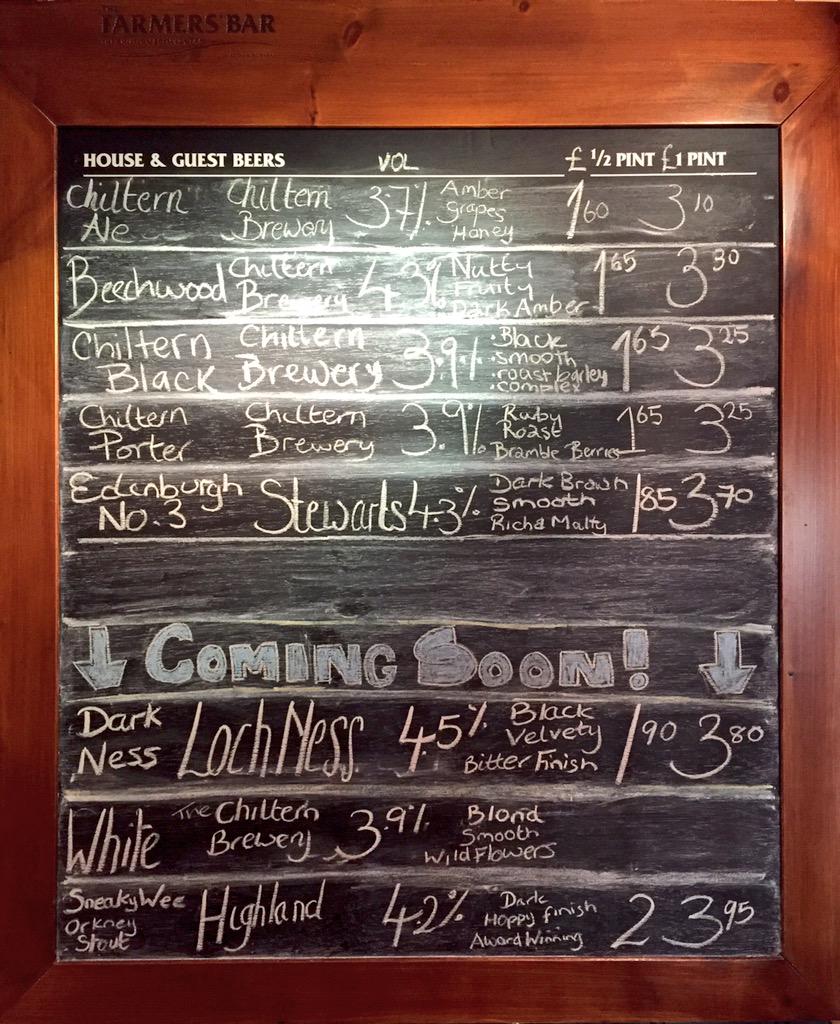 THE
FARMERS' BAR
HOUSE & GUEST BEERS VOL £ 1/2 PINT £1 PINT
Chiltern Ale Chiltern Brewery 3.7% Amber Grapes Honey 1.60 3.10
Beechwood Chiltern Brewery 4.3% Nutty Fruity Dark Amber 1.65 3.30
Chiltern Black Chiltern Brewery 3.9% Black smooth roast barley complex 1.65 3.25
Chiltern Porter Chiltern Brewery 3.9% Ruby Roast Bramble Berries 1.65 3.25
Edinburgh No.3 Stewarts 4.3% Dark Brown Smooth Rich & Malty 1.85 3.70
↓ COMING SOON! ↓
Dark Ness Loch Ness 4.5% Black Velvety Bitter Finish 1.90 3.80
White The Chiltern Brewery 3.9% Blond Smooth Wild Flowers
Sneaky Wee Orkney Stout Highland 4.2% Dark Hoppy finish Award Winning 2 3.95